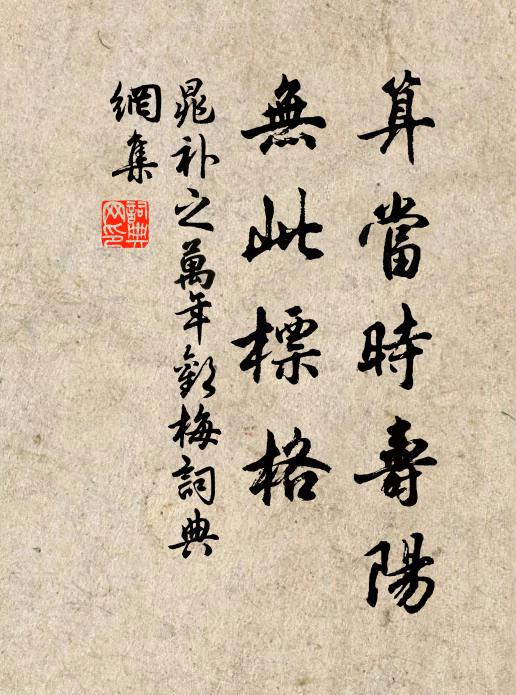 算當時壽陽
無此標格
晁補之萬年歡梅詞典
網集
詞典網印